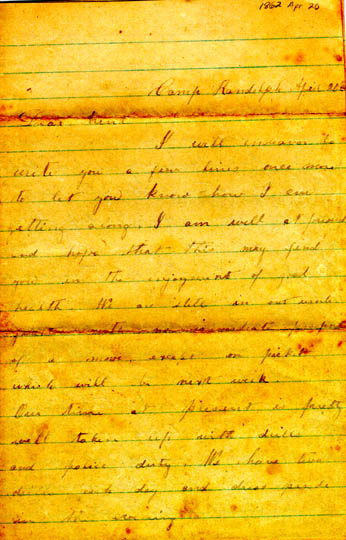 1862 Apr 20
Camp Randolph Apri 20
Dear
I will endeavor to
write you a few lines once more
to let you know how I am
getting along. I am well at present
and hope that this may find
you in the enjoyment of good
health. We are still in our
of a move, except on picket
which will be next week.
Our time at present is pretty
well taken up with drills
and police duty. We have two
drills each day and dress parade
in the evening